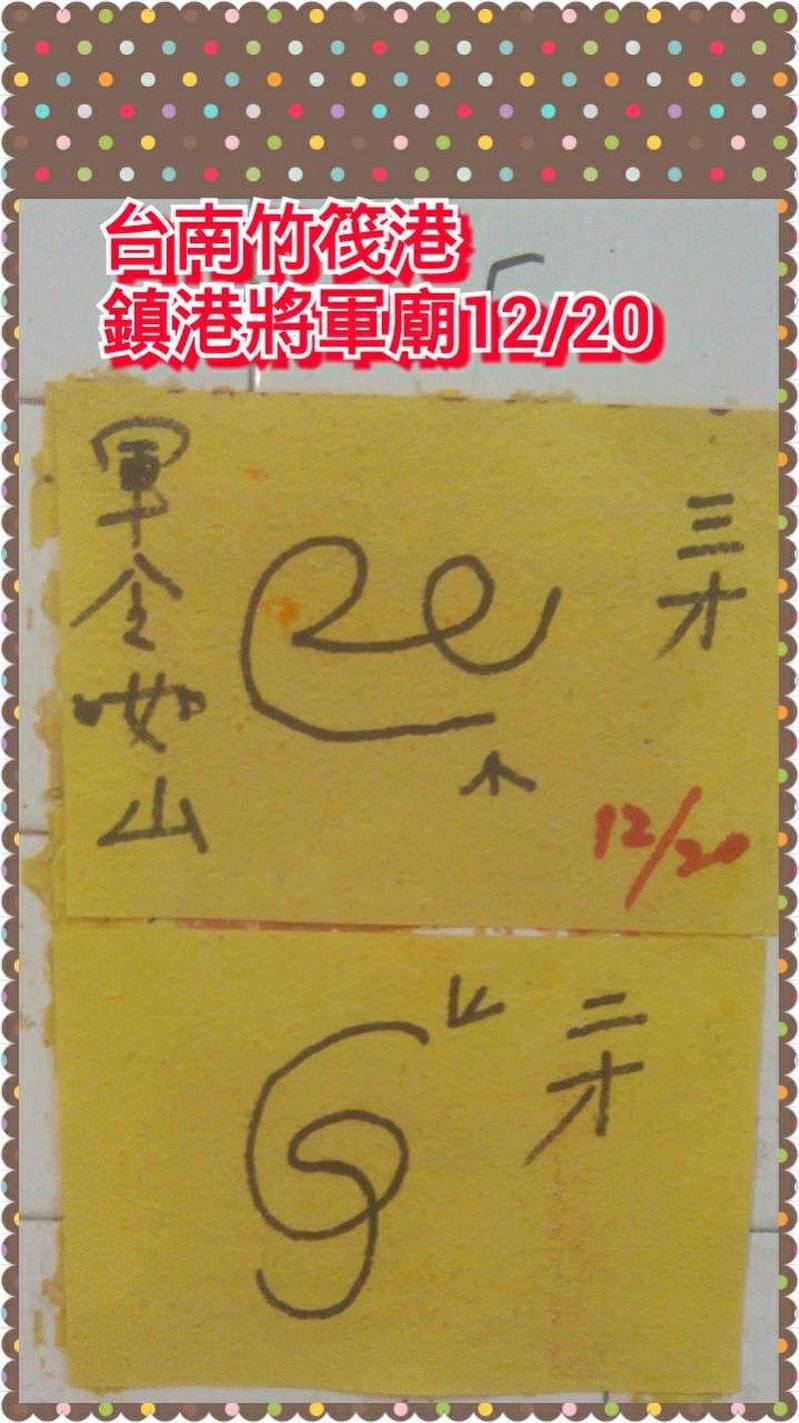 台南竹筏港
鎮港將軍廟12/20
三才
軍令如山
12/20
二才